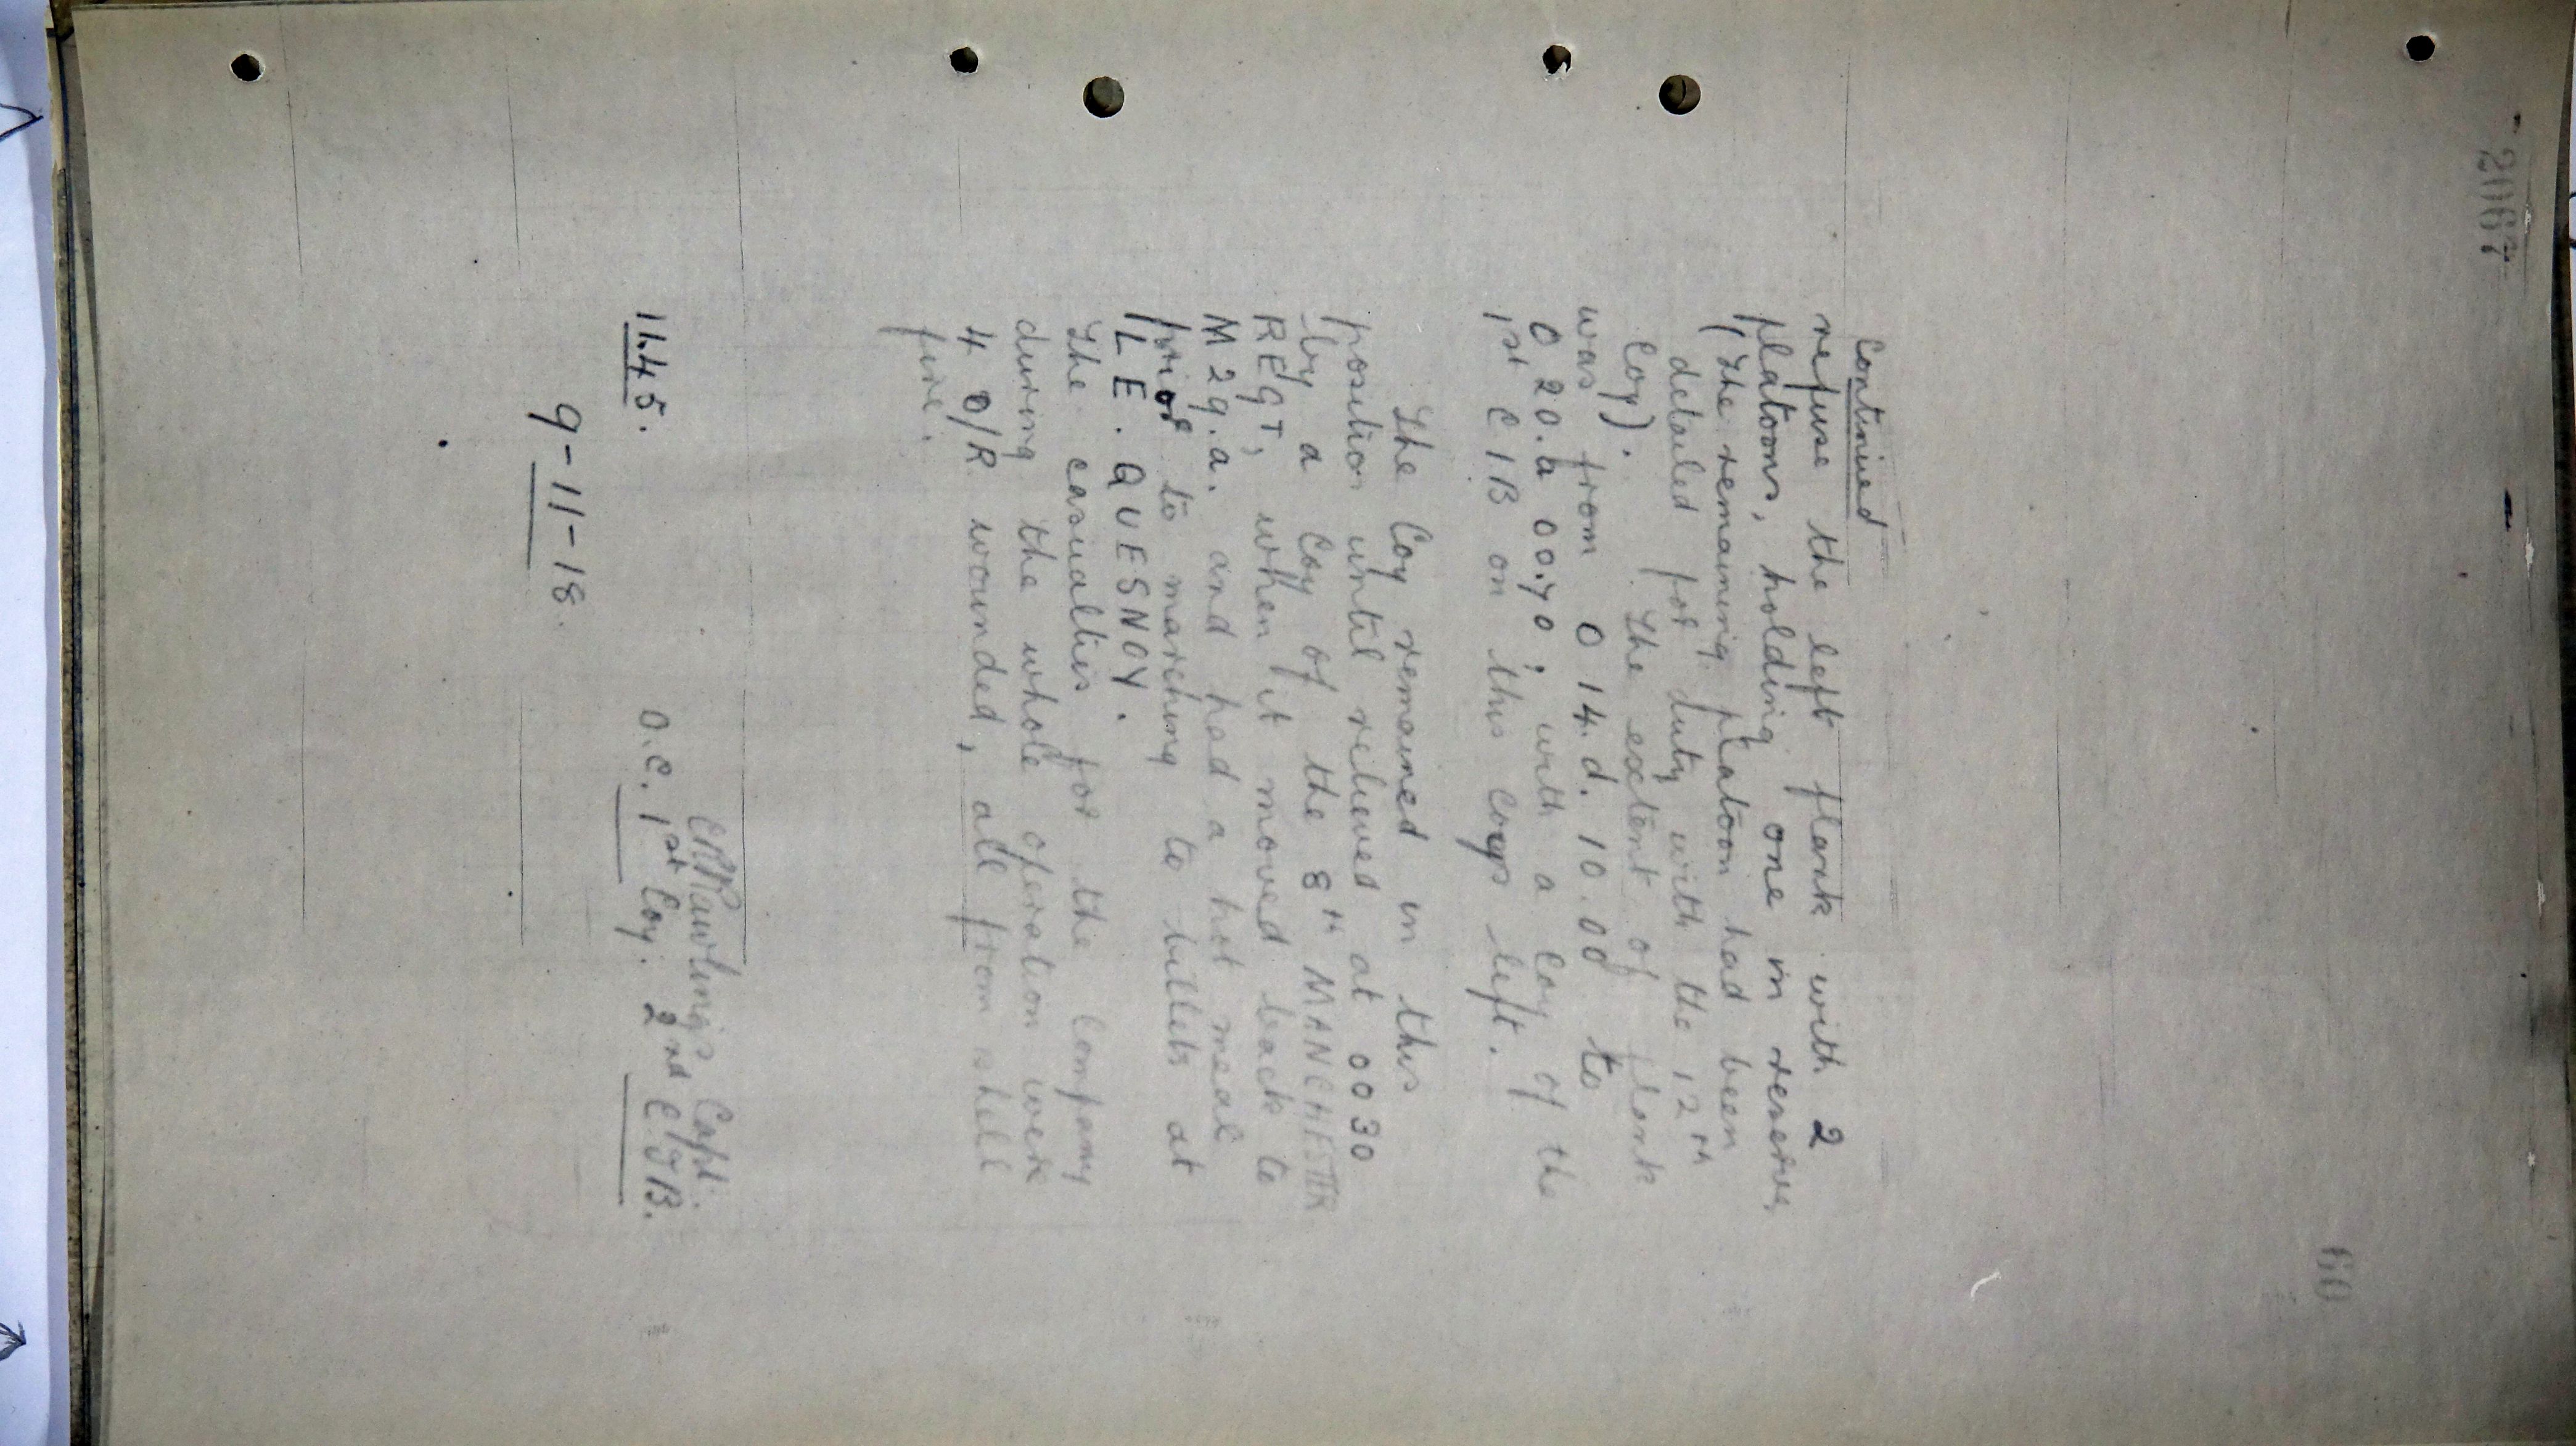 2067
60
Continued
refuse the left flank with 2
platoons, holding one in reserve,
(The remaining platoon had been
detailed for duty with the 12TH
Coy). The extent of flank
was from O 14. d. 10.00 to
O 20.a 00.70; with a Coy of the
1st C I B on this Coys left.
The Coy remained in this
position until relieved at 0030
by a Coy of the 8TH MANCHESTER
REGT, when it moved back to
M 29.a. and had a hot meal
prior to marching to billets at
LE. QUESNOY.
The casualties for the Company
during the whole operation were
4 O/R wounded, all from shell
fire.
Rawlings Capt.
11.45. O.C. 1st Coy. 2nd C I B.
9-11-18.